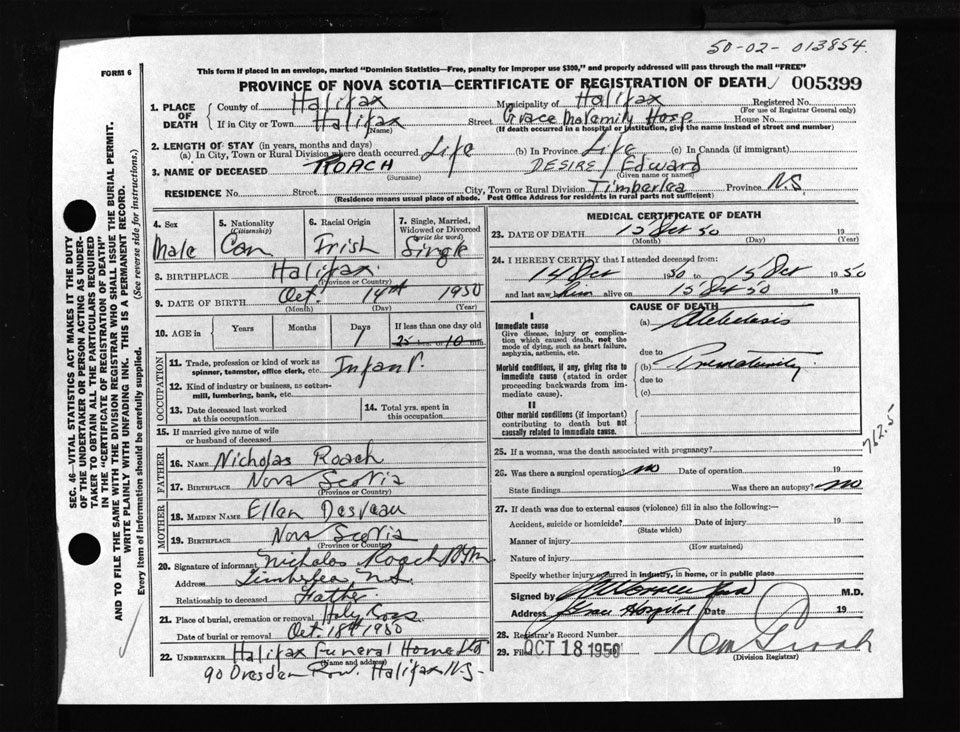 50-02-013854
FORM 6
This form if placed in an envelope, marked "Dominion Statistics—Free, penalty for improper use $300," and properly addressed will pass through the mail "FREE"
PROVINCE OF NOVA SCOTIA—CERTIFICATE OF REGISTRATION OF DEATH 005399
1. PLACE OF DEATH County of Halifax Municipality of Halifax Registered No.
(For use of Registrar General only)
If in City or Town Halifax Street Grace Maternity Hosp. House No.
(Name) (If death occurred in a hospital or institution, give the name instead of street and number)
2. LENGTH OF STAY (in years, months and days)
(a) In City, Town or Rural Division where death occurred Life (b) In Province Life (c) In Canada (if immigrant)
3. NAME OF DECEASED ROACH DESIRE / Edward
(Surname) (Given name or names)
RESIDENCE No. Street City, Town or Rural Division Timberlea Province N.S.
(Residence means usual place of abode. Post Office Address for residents in rural parts not sufficient)
SEC. 46—VITAL STATISTICS ACT MAKES IT THE DUTY
OF THE UNDERTAKER OR PERSON ACTING AS UNDER-
TAKER TO OBTAIN ALL THE PARTICULARS REQUIRED
IN THE "CERTIFICATE OF REGISTRATION OF DEATH"
AND TO FILE THE SAME WITH THE DIVISION REGISTRAR WHO SHALL ISSUE THE BURIAL PERMIT.
WRITE PLAINLY WITH UNFADING INK. THIS IS A PERMANENT RECORD.
Every item of information should be carefully supplied. (See reverse side for instructions.)
4. Sex 5. Nationality (Citizenship) 6. Racial Origin 7. Single, Married, Widowed or Divorced (write the word)
Male Can Irish Single
8. BIRTHPLACE Halifax
(Province or Country)
9. DATE OF BIRTH Oct. 14th 1950
(Month) (Day) (Year)
10. AGE in Years Months Days If less than one day old
1 25 hrs. or 10 min.
OCCUPATION
11. Trade, profession or kind of work as spinner, teamster, office clerk, etc. Infant.
12. Kind of industry or business, as cotton-mill, lumbering, bank, etc.
13. Date deceased last worked at this occupation
14. Total yrs. spent in this occupation
15. If married give name of wife or husband of deceased
FATHER
16. NAME Nicholas Roach
17. BIRTHPLACE Nova Scotia
(Province or Country)
MOTHER
18. MAIDEN NAME Ellen Desveau
19. BIRTHPLACE Nova Scotia
(Province or Country)
20. Signature of informant Nicholas Roach
Address Timberlea, N.S.
Relationship to deceased Father.
21. Place of burial, cremation or removal Holy Cross
Date of burial or removal Oct. 18th 1950
22. UNDERTAKER Halifax Funeral Home Ltd
(Name and address)
90 Dresden Row. Halifax N.S.
MEDICAL CERTIFICATE OF DEATH
23. DATE OF DEATH 15 Oct 50
(Month) (Day) (Year)
24. I HEREBY CERTIFY that I attended deceased from:
14 Oct 1950 to 15 Oct 1950
and last saw him alive on 15 Oct 50 19
CAUSE OF DEATH
I
Immediate cause
Give disease, injury or complication which caused death, not the mode of dying, such as heart failure, asphyxia, asthenia, etc.
(a) Atelectasis
due to
Morbid conditions, if any, giving rise to immediate cause (stated in order proceeding backwards from immediate cause).
(b) Prematurity
due to
(c)
II
Other morbid conditions (if important) contributing to death but not causally related to immediate cause.
762.5
25. If a woman, was the death associated with pregnancy?
26. Was there a surgical operation? no Date of operation 19
State findings Was there an autopsy? no
27. If death was due to external causes (violence) fill in also the following:—
Accident, suicide or homicide? Date of injury 19
(State which)
Manner of injury
(How sustained)
Nature of injury
Specify whether injury occurred in industry, in home, or in public place
Signed by M.D.
Address Grace Hospital Date 19
28. Registrar's Record Number
29. Filed OCT 18 1950
(Division Registrar)